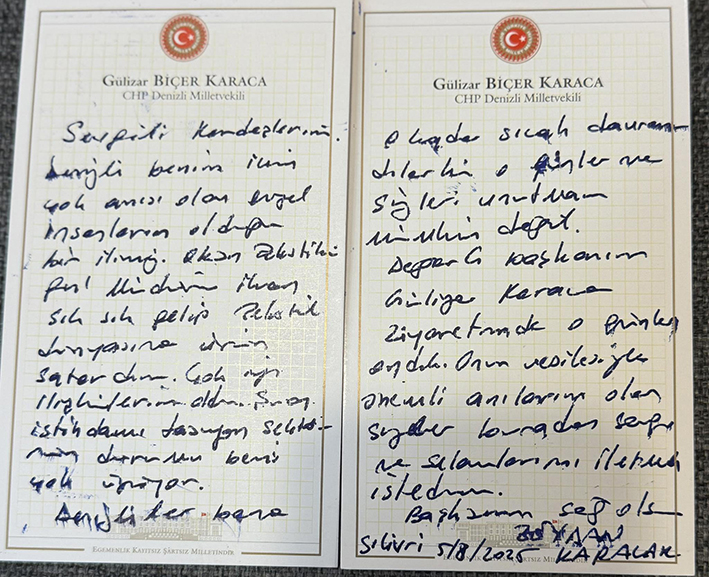 Gülizar BİÇER KARACA
CHP Denizli Milletvekili
Sevgili Kardeşlerim.
Denizli benim için
çok anısı olan güzel
insanların olduğu
bir ilimiz.
sık sık gelip Tekstil
dünyasına ürün
satardım. Çok iyi
ilişkilerim oldu.
istihdamı taşıyan
durumu beni
çok üzüyor.
Denizliler bana
EGEMENLİK KAYITSIZ ŞARTSIZ MİLLETİNDİR
Gülizar BİÇER KARACA
CHP Denizli Milletvekili
o kadar sıcak davran
dılar ki o günler ve
sizleri unutmam
mümkün değil.
Değerli başkanım
Karaca
ziyaretimde o günleri
andık. Onun vesilesiyle
önemli anılarım olan
sizlere buradan sevgi
ve selamlarımı iletmek
istedim.
Başkanım sağ olsun
Silivri 5/8/2025